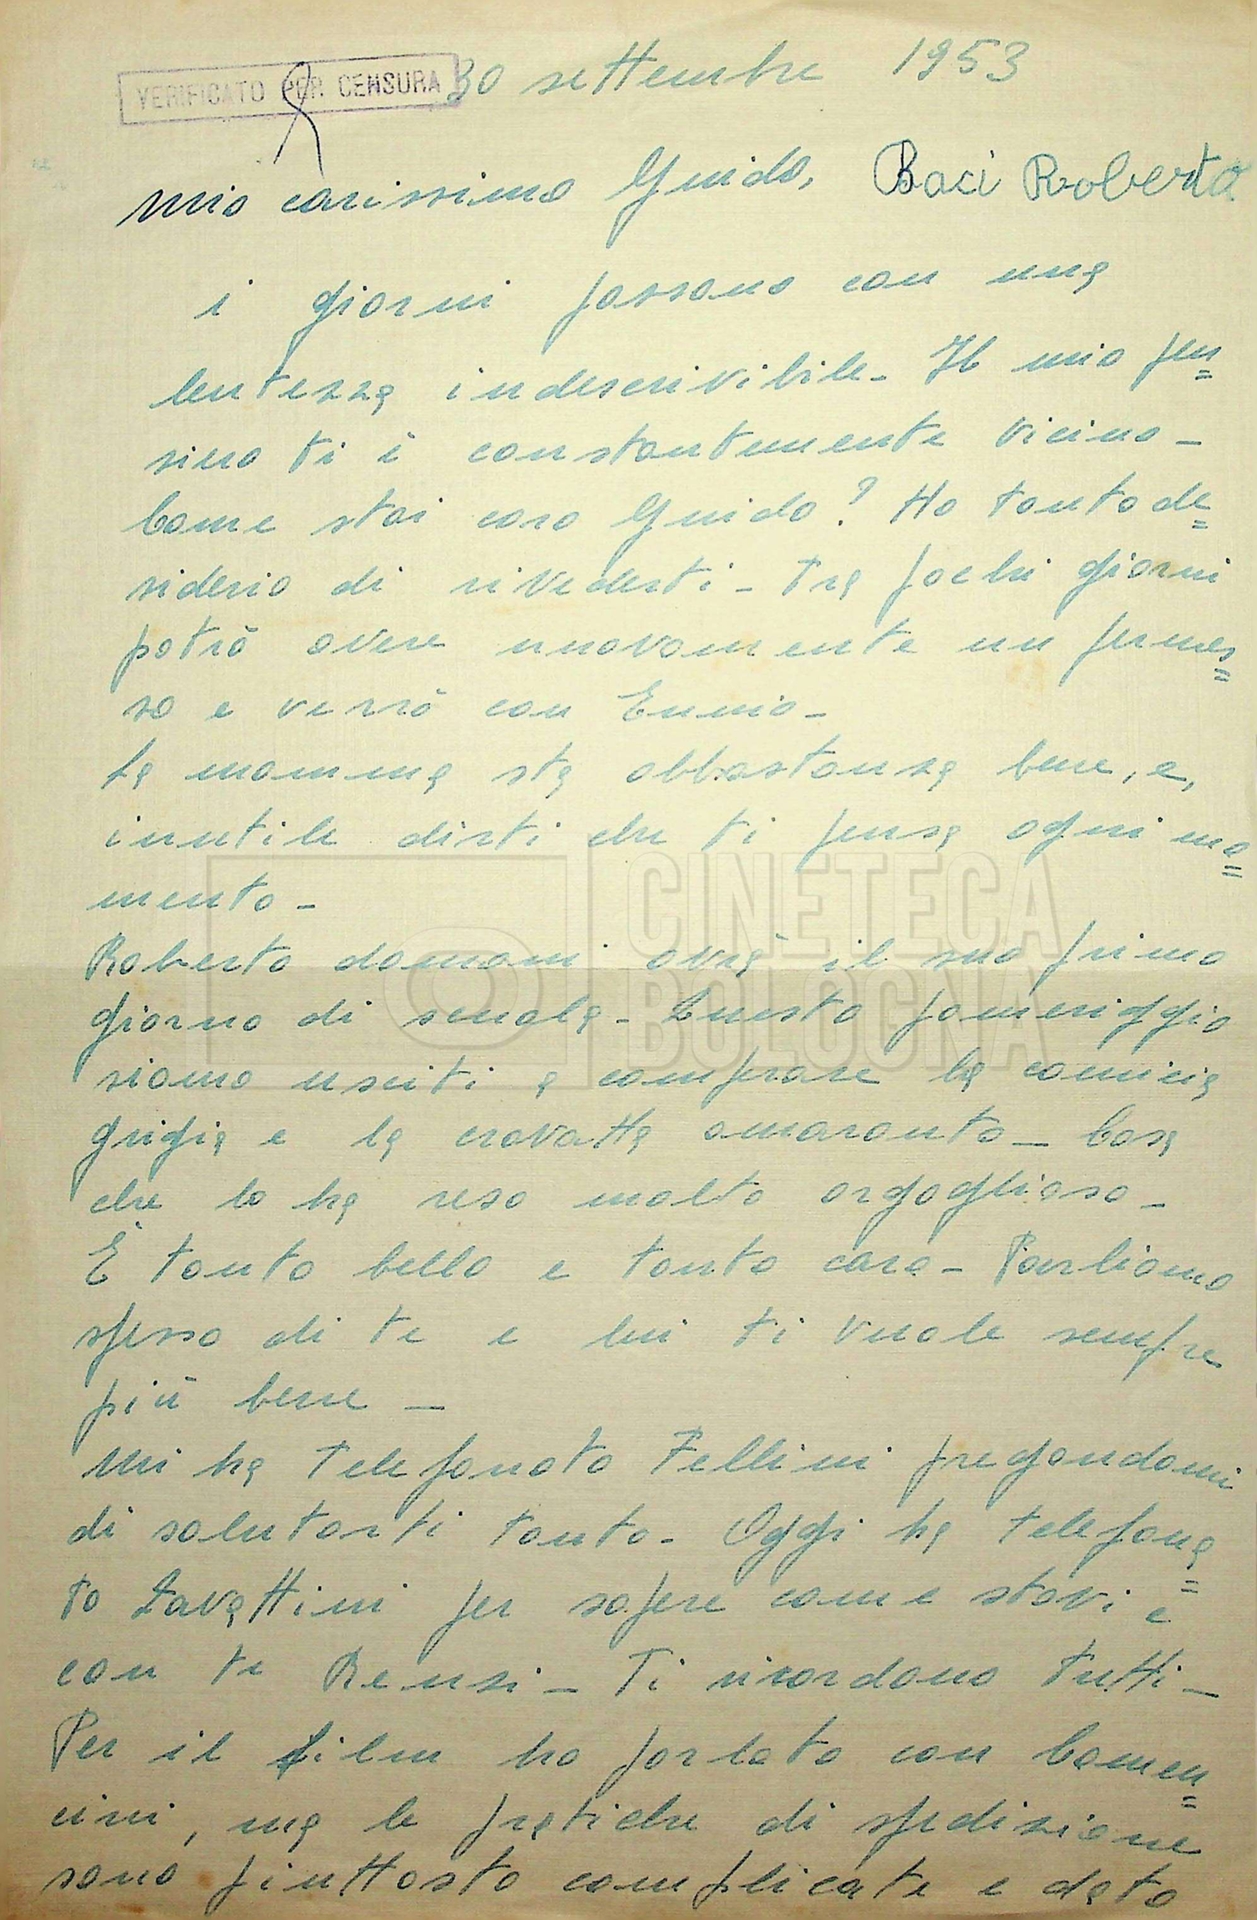 30 settembre 1953
VERIFICATO PER CENSURA
Mio carissimo Guido, Baci Roberto
i giorni passano con una
lentezza indescrivibile - Il mio pen=
siero ti è constantemente vicino -
Come stai caro Guido? Ho tanto de=
siderio di rivederti - Tra pochi giorni
potrò avere nuovamente un permes=
so e verrò con Ennio -
La mamma sta abbastanza bene, e,
inutile dirti che ti pensa ogni mo=
mento -
Roberto domani avrà il suo primo
giorno di scuola - Questo pomeriggio
siamo usciti a comprare la camicia
grigia e la cravatta amaranto - Cosa
che lo ha reso molto orgoglioso -
È tanto bello e tanto caro - Parliamo
spesso di te e lui ti vuole sempre
più bene -
Mi ha telefonato Fellini pregandomi
di salutarti tanto - Oggi ha telefona=
to Zavattini per sapere come stavi e
con te Renzi - Ti ricordano tutti -
Per il film ho parlato con Comen=
cini, ma le pratiche di spedizione
sono piuttosto complicate e dato
CINETECA
BOLOGNA